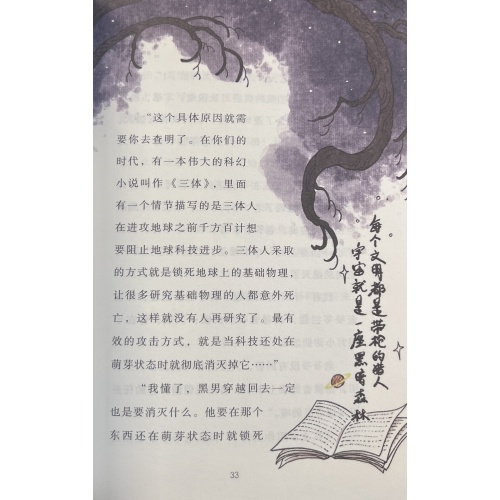 “这个具体原因就需
要你去查明了。在你们的
时代，有一本伟大的科幻
小说叫作《三体》，里面
有一个情节描写的是三体人
在进攻地球之前千方百计想
要阻止地球科技进步。三体人采取
的方式就是锁死地球上的基础物理，
让很多研究基础物理的人都意外死
亡，这样就没有人再研究了。最有
效的攻击方式，就是当科技还处在
萌芽状态时就彻底消灭掉它……”
“我懂了，黑男穿越回去一定
也是要消灭什么。他要在那个
东西还在萌芽状态时就锁死
宇宙就是一座黑暗森林
每个文明都是带枪的猎人
33